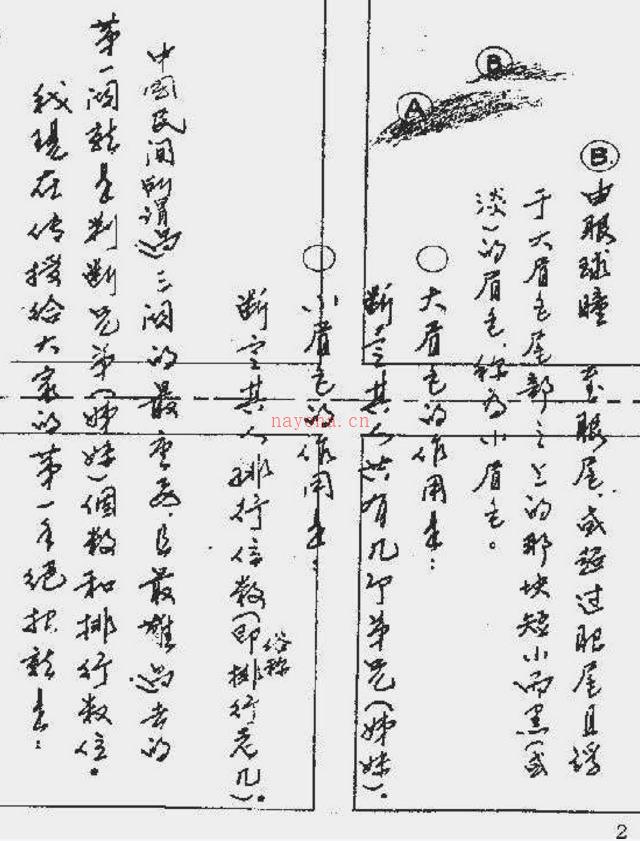 B
A
Ⓑ. 由眼球瞳 至眼尾，或超过眼尾且浮
于大眉毛尾部之上的那块短小而黑（或
淡）的眉毛，称为小眉毛。
○ 大眉毛的作用是：
断定其人共有几个弟兄（姊妹）。
○ 小眉毛的作用是：
断定其人排行位数（即俗称排行老几）。
中國民间所谓过三関的最重要，且最难过去的
第一関就是判断兄弟（姊妹）個数和排行数位。
我现在传授给大家的第一手绝招就是：
nayona.cn
2